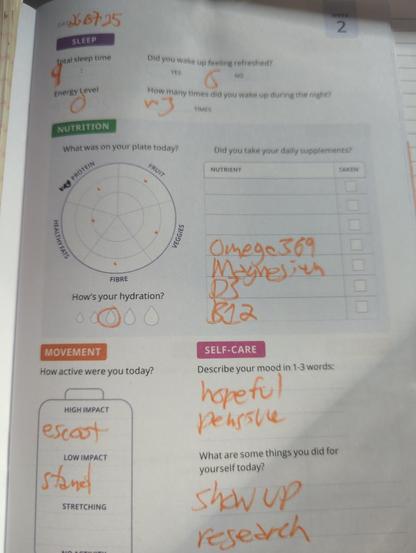 26·07·25
WEEK
2
SLEEP
Total sleep time
9
Did you wake up feeling refreshed?
YES
NO
Energy Level
0
How many times did you wake up during the night?
n3
TIMES
NUTRITION
What was on your plate today?
PROTEIN
FRUIT
VEGGIES
FIBRE
HEALTHY FATS
Did you take your daily supplements?
NUTRIENT
TAKEN
Omega369
Magnesium
D3
B12
How's your hydration?
MOVEMENT
How active were you today?
HIGH IMPACT
escoot
LOW IMPACT
stand
STRETCHING
SELF-CARE
Describe your mood in 1-3 words:
hopeful
pensive
What are some things you did for
yourself today?
show up
research